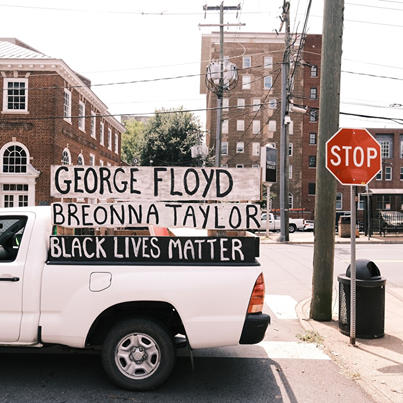 GEORGE FLOYD
BREONNA TAYLOR
BLACK LIVES MATTER
STOP